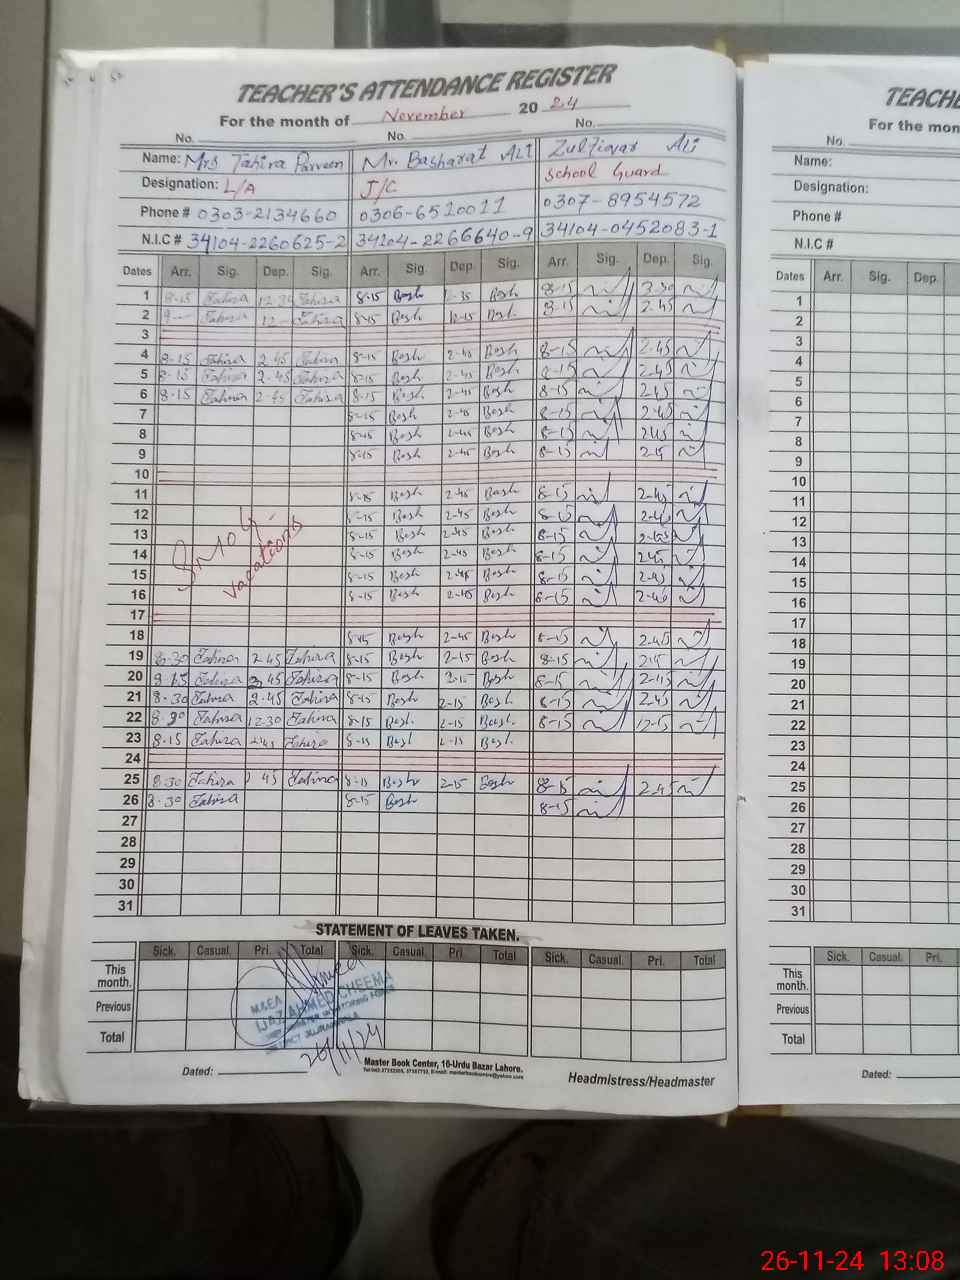 TEACHER'S ATTENDANCE REGISTER
For the month of November 2024
No. No. No.
Name: Mrs Tahira Parveen Mr. Basharat ALI Zulfiqar ALi
Designation: L/A J/C School Guard
Phone # 0303-2134660 0306-6510011 0307-8954572
N.I.C # 34104-2260625-2 34104-2266640-9 34104-0452083-1
Dates Arr. Sig. Dep. Sig. Arr. Sig. Dep. Sig. Arr. Sig. Dep. Sig.
1 8-15 Tahira Tahira 8-15 Bash Bash 8-15
2 Tahira Tahira 8-15 Bash 12-15 Bash 8-15 2.45
3
4 8-15 Tahira 2.45 Tahira 8-15 Bash 2-45 Bash 8-15 2.45
5 8-15 Tahira 2.45 Tahira 8-15 Bash 2-45 Bash 8-15 2.45
6 8-15 Tahira 2.45 Tahira 8-15 Bash 2-45 Bash 8-15 2.45
7 8-15 Bash 2-45 Bash 8-15 2.45
8 8-15 Bash 2-45 Bash 8-15 2.45
9 8-15 Bash 2-45 Bash 8-15
10
11 8-15 Bash 2-45 Bash 8-15 2.45
12 8-15 Bash 2-45 Bash 8-15 2.45
13 8-15 Bash 2-45 Bash 8-15
14 8-15 Bash 2-45 Bash 8-15 2.45
15 8-15 Bash 2-45 Bash 8-15 2.45
16 8-15 Bash 2-45 Bash 8-15
Smog
vacations
17
18 8-15 Bash 2-45 Bash 8-15 2.45
19 8-30 Tahira 2.45 Tahira 8-15 Bash 2-15 Bash 8-15
20 Tahira 2.45 Tahira 8-15 Bash 2-15 Bash 8-15 2.45
21 8-30 Tahira 2.45 Tahira 8-15 Bash 2-15 Bash 8-15 2.45
22 Tahira 12.30 Tahira 8-15 Bash 2-15 Bash 8-15
23 8-15 Tahira 2.45 Tahira 8-15 Bash 2-15 Bash
24
25 8.30 Tahira Tahira 8-15 Bash 2-15 Bash 8-15 2.45
26 8.30 Tahira 8-15 Bash 8-15
27
28
29
30
31
STATEMENT OF LEAVES TAKEN.
Sick. Casual. Pri. Total Sick. Casual. Pri. Total Sick. Casual. Pri. Total
This month.
Previous
Total
M&EA
IJAZ AHMED CHEEMA
26/11/24
Dated:
Master Book Center, 16-Urdu Bazar Lahore.
Headmistress/Headmaster
TEACHE
For the mon
No.
Name:
Designation:
Phone #
N.I.C #
Dates Arr. Sig. Dep.
1
2
3
4
5
6
7
8
9
10
11
12
13
14
15
16
17
18
19
20
21
22
23
24
25
26
27
28
29
30
31
Sick. Casual. Pri.
This month.
Previous
Total
Dated:
26-11-24 13:08